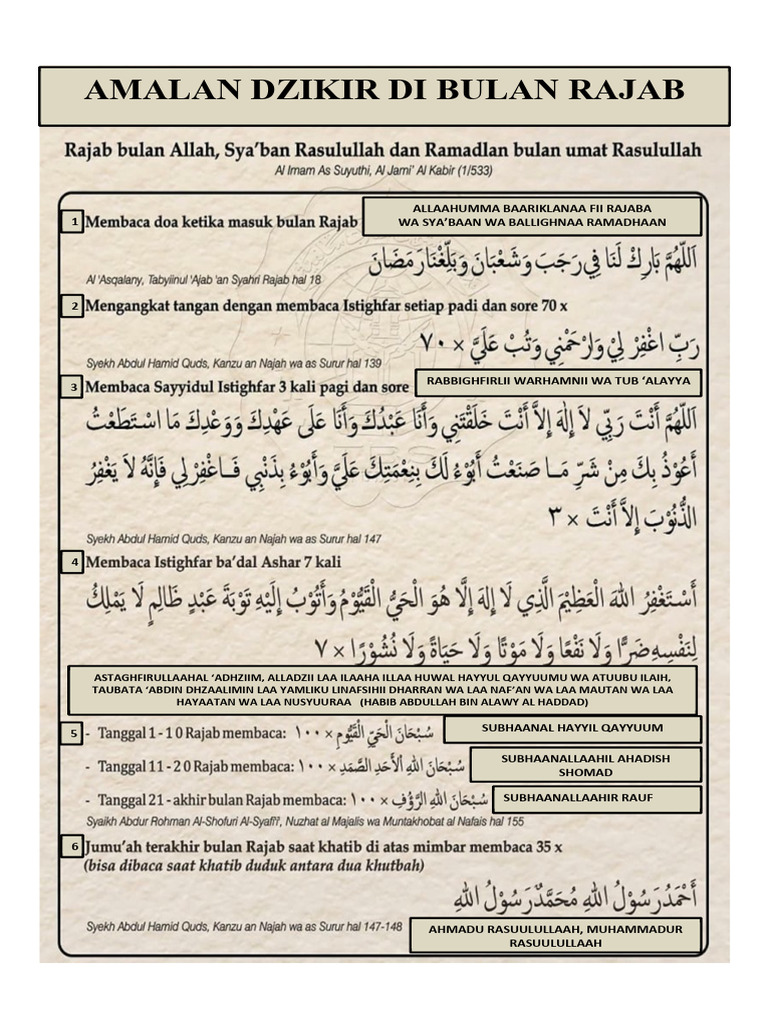 AMALAN DZIKIR DI BULAN RAJAB
Rajab bulan Allah, Sya'ban Rasulullah dan Ramadlan bulan umat Rasulullah
Al Imam As Suyuthi, Al Jami' Al Kabir (1/533)
1 Membaca doa ketika masuk bulan Rajab
ALLAAHUMMA BAARIKLANAA FII RAJABA
WA SYA'BAAN WA BALLIGHNAA RAMADHAAN
اَللّٰهُمَّ بَارِكْ لَنَا فِي رَجَبَ وَشَعْبَانَ وَبَلِّغْنَا رَمَضَانَ
Al 'Asqalany, Tabyiinul 'Ajab 'an Syahri Rajab hal 18
2 Mengangkat tangan dengan membaca Istighfar setiap padi dan sore 70 x
رَبِّ اغْفِرْ لِيْ وَارْحَمْنِي وَتُبْ عَلَيَّ × ٧٠
Syekh Abdul Hamid Quds, Kanzu an Najah wa as Surur hal 139
3 Membaca Sayyidul Istighfar 3 kali pagi dan sore
RABBIGHFIRLII WARHAMNII WA TUB 'ALAYYA
اَللّٰهُمَّ أَنْتَ رَبِّي لَا إِلٰهَ إِلاَّ أَنْتَ خَلَقْتَنِي وَأَنَا عَبْدُكَ وَأَنَا عَلَى عَهْدِكَ وَوَعْدِكَ مَا اسْتَطَعْتُ
أَعُوْذُ بِكَ مِنْ شَرِّ مَا صَنَعْتُ أَبُوْءُ لَكَ بِنِعْمَتِكَ عَلَيَّ وَأَبُوْءُ بِذَنْبِي فَاغْفِرْ لِي فَإِنَّهُ لاَ يَغْفِرُ
الذُّنُوْبَ إِلاَّ أَنْتَ × ٣
Syekh Abdul Hamid Quds, Kanzu an Najah wa as Surur hal 147
4 Membaca Istighfar ba'dal Ashar 7 kali
أَسْتَغْفِرُ اللهَ الْعَظِيْمَ الَّذِي لَا إِلهَ إِلَّا هُوَ الْحَيُّ الْقَيُّوْمُ وَأَتُوْبُ إِلَيْهِ تَوْبَةَ عَبْدٍ ظَالِمٍ لَا يَمْلِكُ
لِنَفْسِهِ ضَرًّا وَلَا نَفْعًا وَلَا مَوْتًا وَلَا حَيَاةً وَلَا نُشُوْرًا × ٧
ASTAGHFIRULLAAHAL 'ADHZIIM, ALLADZII LAA ILAAHA ILLAA HUWAL HAYYUL QAYYUUMU WA ATUUBU ILAIH,
TAUBATA 'ABDIN DHZAALIMIN LAA YAMLIKU LINAFSIHII DHARRAN WA LAA NAF'AN WA LAA MAUTAN WA LAA
HAYAATAN WA LAA NUSYUURAA (HABIB ABDULLAH BIN ALAWY AL HADDAD)
5 - Tanggal 1 - 10 Rajab membaca: سُبْحَانَ الْحَيِّ الْقَيُّوْمِ × ١٠٠
SUBHAANAL HAYYIL QAYYUUM
- Tanggal 11 - 20 Rajab membaca: سُبْحَانَ اللهِ الْأَحَدِ الصَّمَدِ × ١٠٠
SUBHAANALLAAHIL AHADISH
SHOMAD
- Tanggal 21 - akhir bulan Rajab membaca: سُبْحَانَ اللهِ الرَّؤُوْفِ × ١٠٠
SUBHAANALLAAHIR RAUF
Syaikh Abdur Rohman Al-Shofuri Al-Syafi'i, Nuzhat al Majalis wa Muntakhobat al Nafais hal 155
6 Jumu'ah terakhir bulan Rajab saat khatib di atas mimbar membaca 35 x
(bisa dibaca saat khatib duduk antara dua khutbah)
أَحْمَدُ رَسُوْلُ اللهِ مُحَمَّدٌ رَسُوْلُ اللهِ
Syekh Abdul Hamid Quds, Kanzu an Najah wa as Surur hal 147-148
AHMADU RASUULULLAAH, MUHAMMADUR
RASUULULLAAH